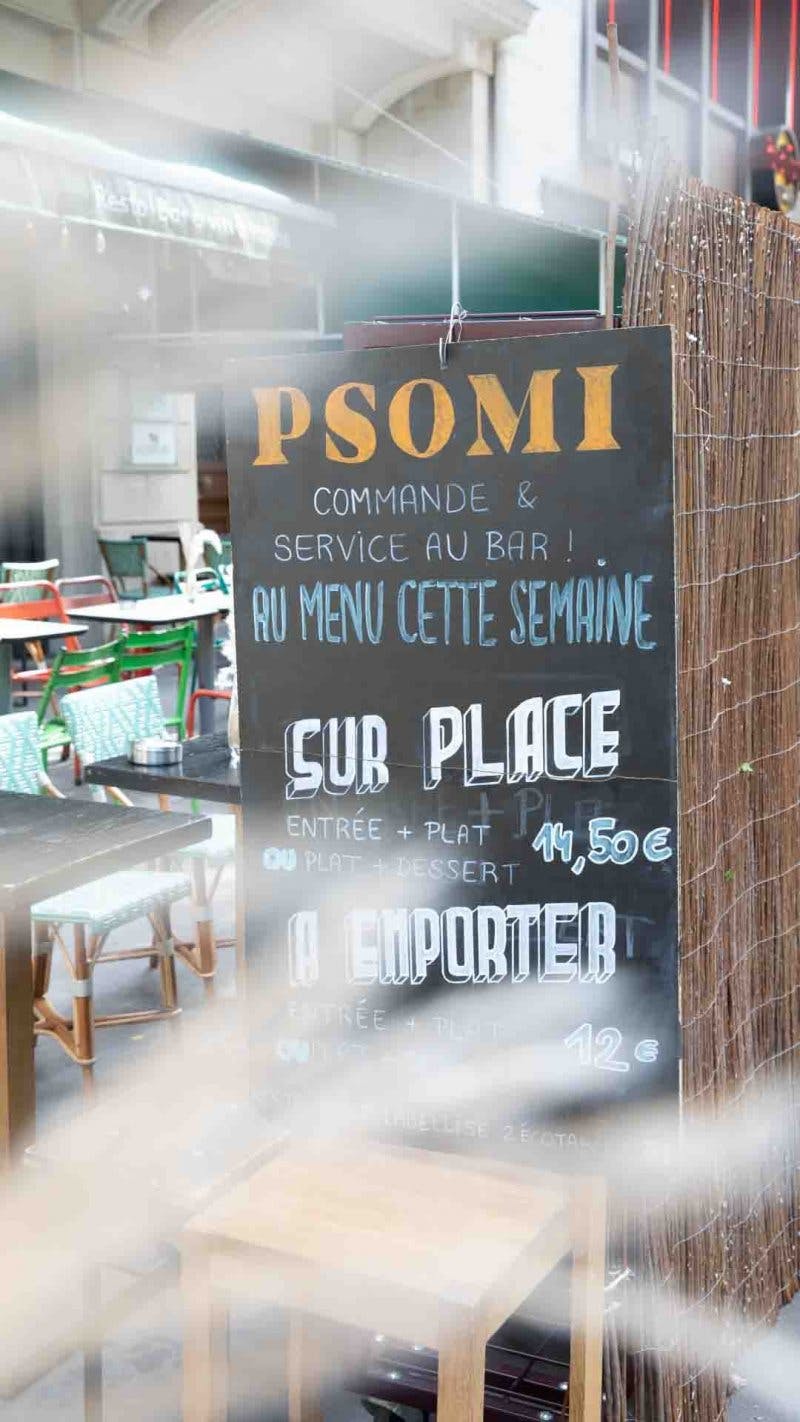 PSOMI
COMMANDE &
SERVICE AU BAR !
AU MENU CETTE SEMAINE
SUR PLACE
ENTRÉE + PLAT 14,50€
OU PLAT + DESSERT
A EMPORTER
ENTRÉE + PLAT
OU 12€
LABELLISÉ 2 ÉCOTA